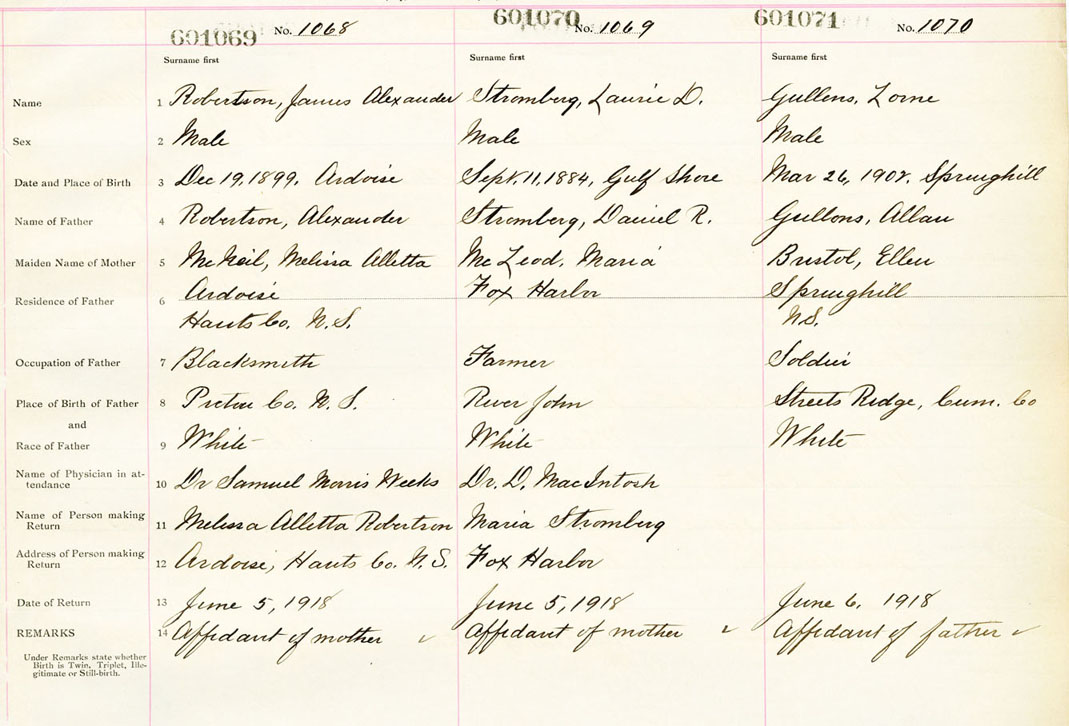 601069 No. 1068 601070 No. 1069 601071 No. 1070
Surname first Surname first Surname first
Name 1 Robertson, James Alexander Stromberg, Laurie D. Gullens, Lorne
Sex 2 Male Male Male
Date and Place of Birth 3 Dec 19, 1899, Ardoise Sept. 11, 1884, Gulf Shore Mar 26, 1902. Springhill
Name of Father 4 Robertson, Alexander Stromberg, Daniel R. Gullons, Allan
Maiden Name of Mother 5 McNeil, Melissa Alletta McLeod, Maria Bristol, Ellen
Residence of Father 6 Ardoise Fox Harbor Springhill
Hants Co. N.S. N.S.
Occupation of Father 7 Blacksmith Farmer Soldier
Place of Birth of Father 8 Pictou Co. N.S. River John Streets Ridge, Cum. Co
and
Race of Father 9 White White White
Name of Physician in at-
tendance 10 Dr Samuel Morris Weeks Dr. D. MacIntosh
Name of Person making
Return 11 Melissa Alletta Robertson Maria Stromberg
Address of Person making
Return 12 Ardoise, Hants Co. N.S. Fox Harbor
Date of Return 13 June 5, 1918 June 5, 1918 June 6, 1918
REMARKS 14 Affidavit of mother ✓ Affidavit of mother ✓ Affidavit of father ✓
Under Remarks state whether
Birth is Twin, Triplet, Ille-
gitimate or Still-birth.